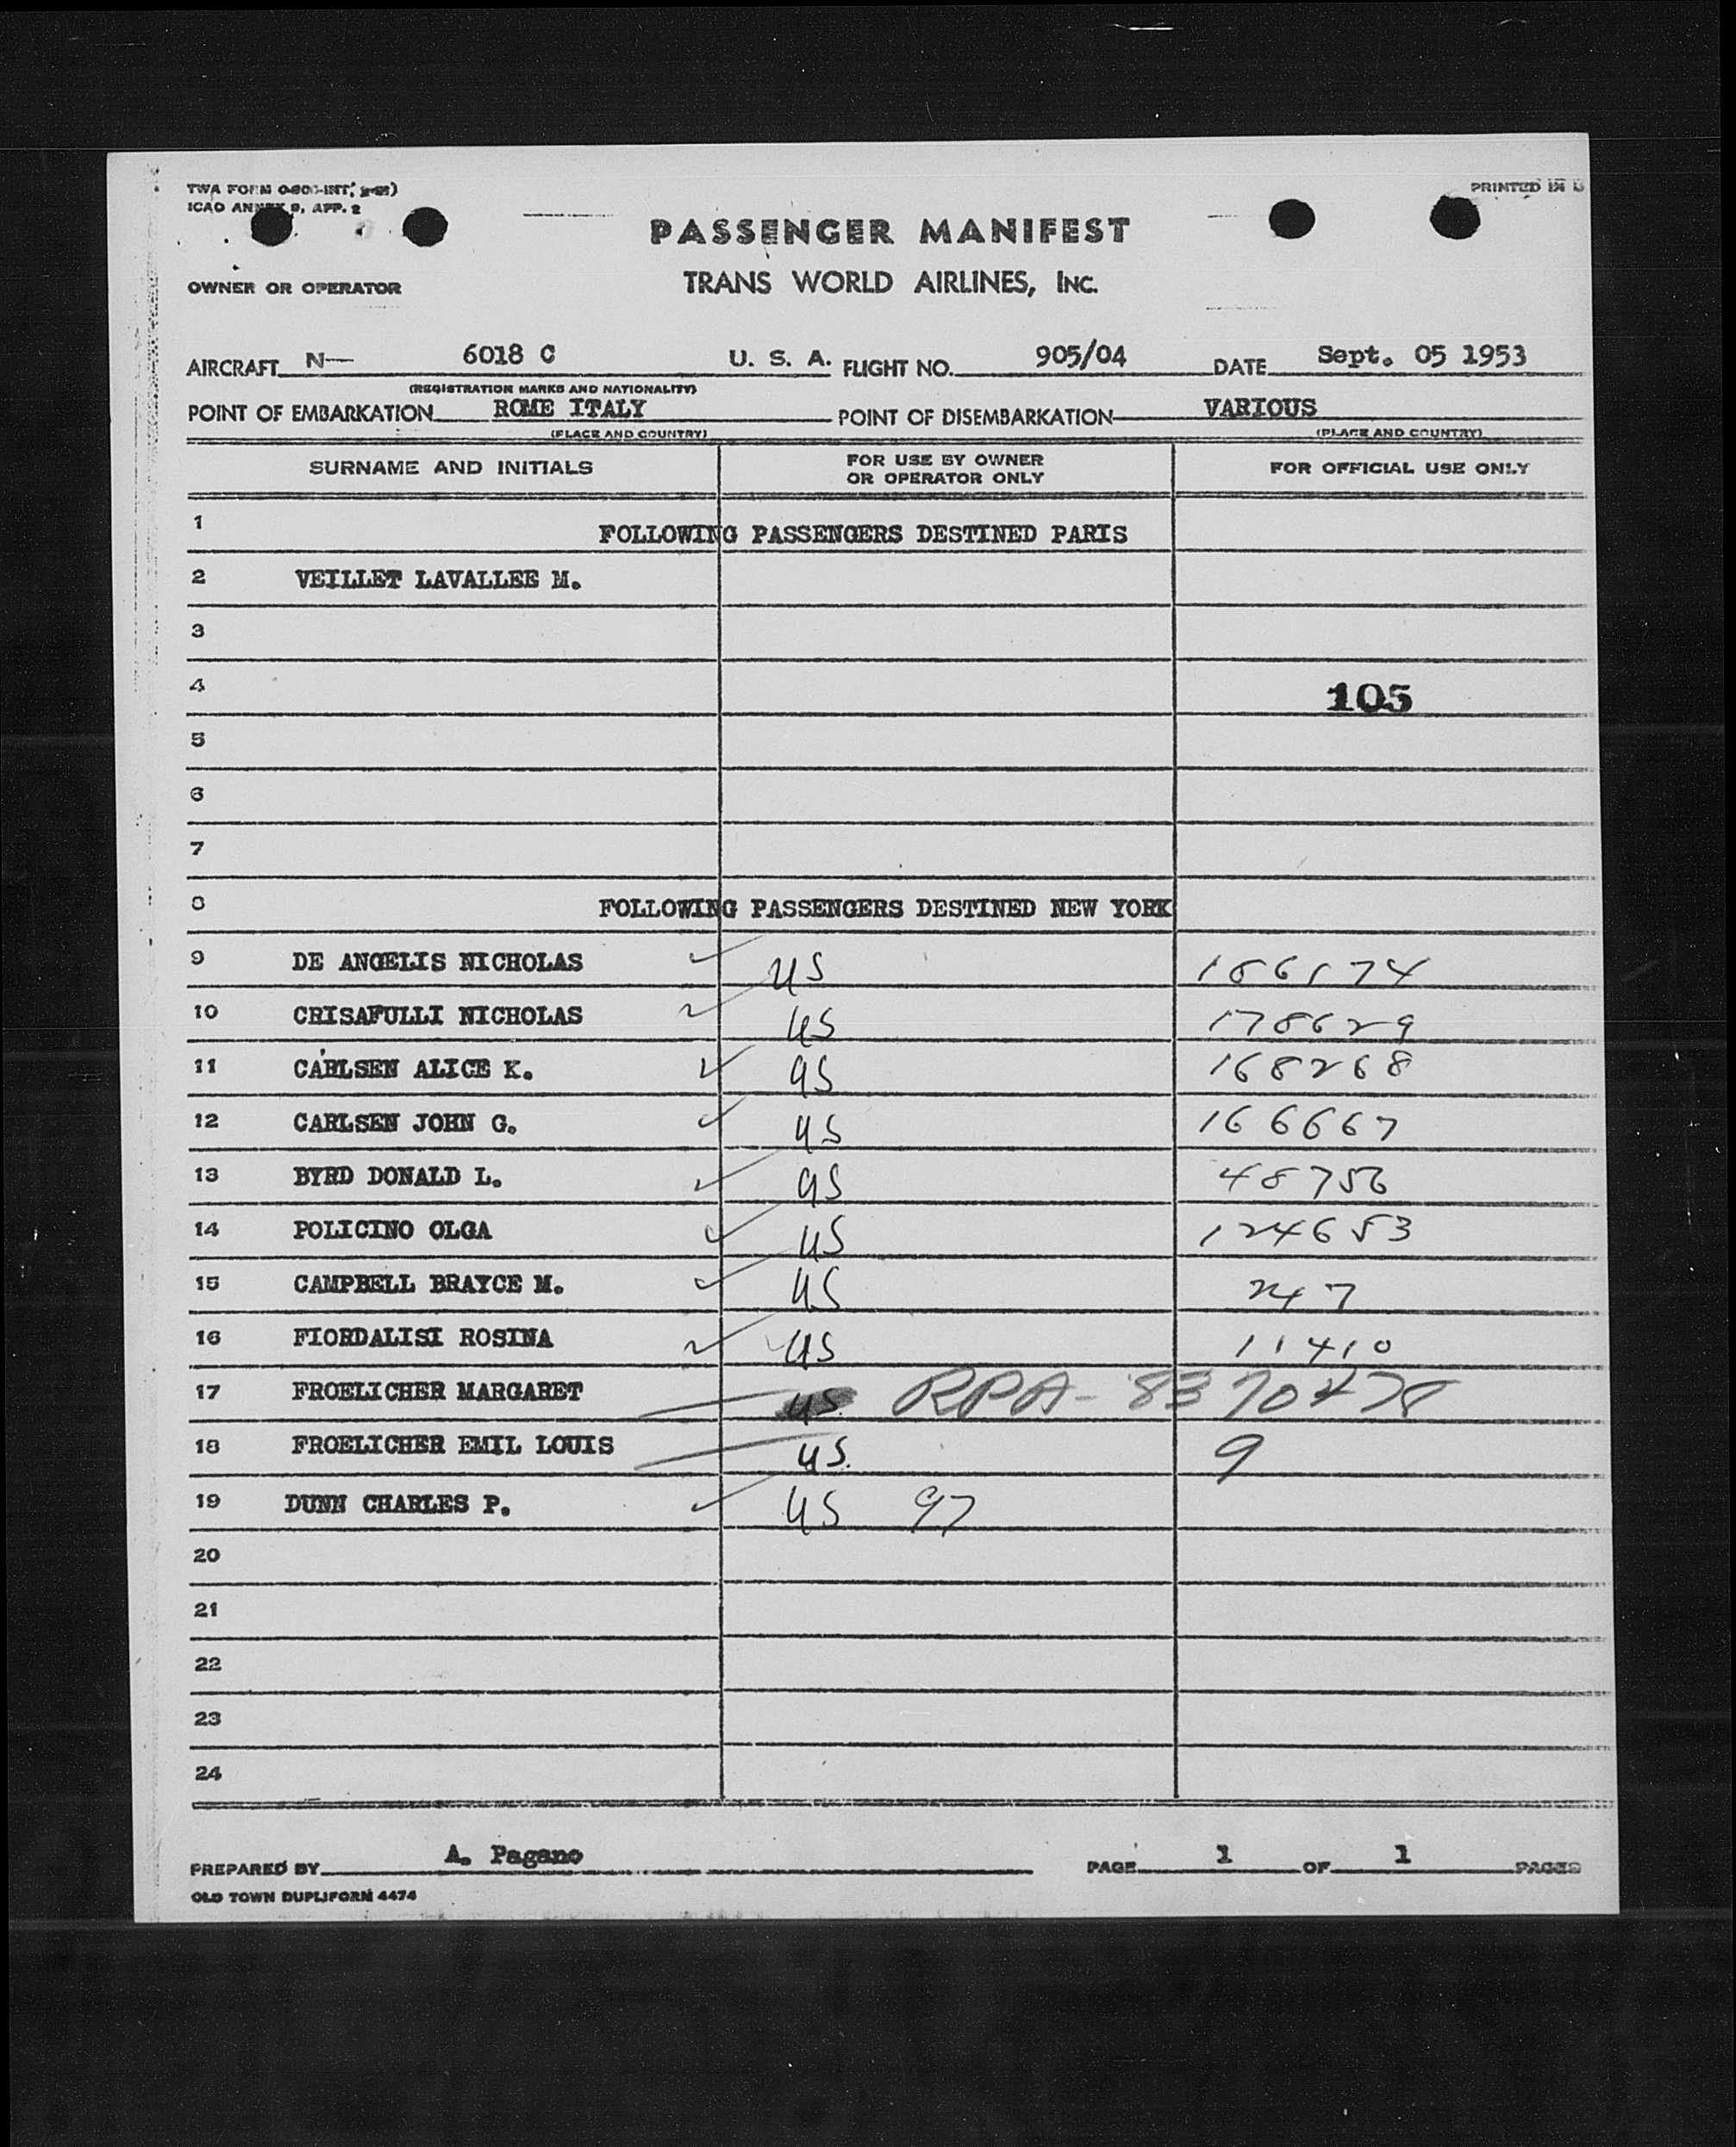 TWA FORM
ICAO ANNEX 9, APP. 2
PRINTED IN U
PASSENGER MANIFEST
OWNER OR OPERATOR
TRANS WORLD AIRLINES, INC.
AIRCRAFT N— 6018 C U. S. A. FLIGHT NO. 905/04 DATE Sept. 05 1953
(REGISTRATION MARKS AND NATIONALITY)
POINT OF EMBARKATION ROME ITALY POINT OF DISEMBARKATION VARIOUS
(PLACE AND COUNTRY) (PLACE AND COUNTRY)
SURNAME AND INITIALS FOR USE BY OWNER OR OPERATOR ONLY FOR OFFICIAL USE ONLY
1 FOLLOWING PASSENGERS DESTINED PARIS
2 VEILLET LAVALLEE M.
3
4 105
5
6
7
8 FOLLOWING PASSENGERS DESTINED NEW YORK
9 DE ANGELIS NICHOLAS US
10 CRISAFULLI NICHOLAS US 178629
11 CARLSEN ALICE K. US 168268
12 CARLSEN JOHN G. US 166667
13 BYRD DONALD L. US 48756
14 POLICINO OLGA US 124653
15 CAMPBELL BRAYCE M. US 247
16 FIORDALISI ROSINA US 11410
17 FROELICHER MARGARET US RPA-
18 FROELICHER EMIL LOUIS US. 9
19 DUNN CHARLES P. US 97
20
21
22
23
24
PREPARED BY A. Pagano PAGE 1 OF 1 PAGES
OLD TOWN DUPLIFORM 4474